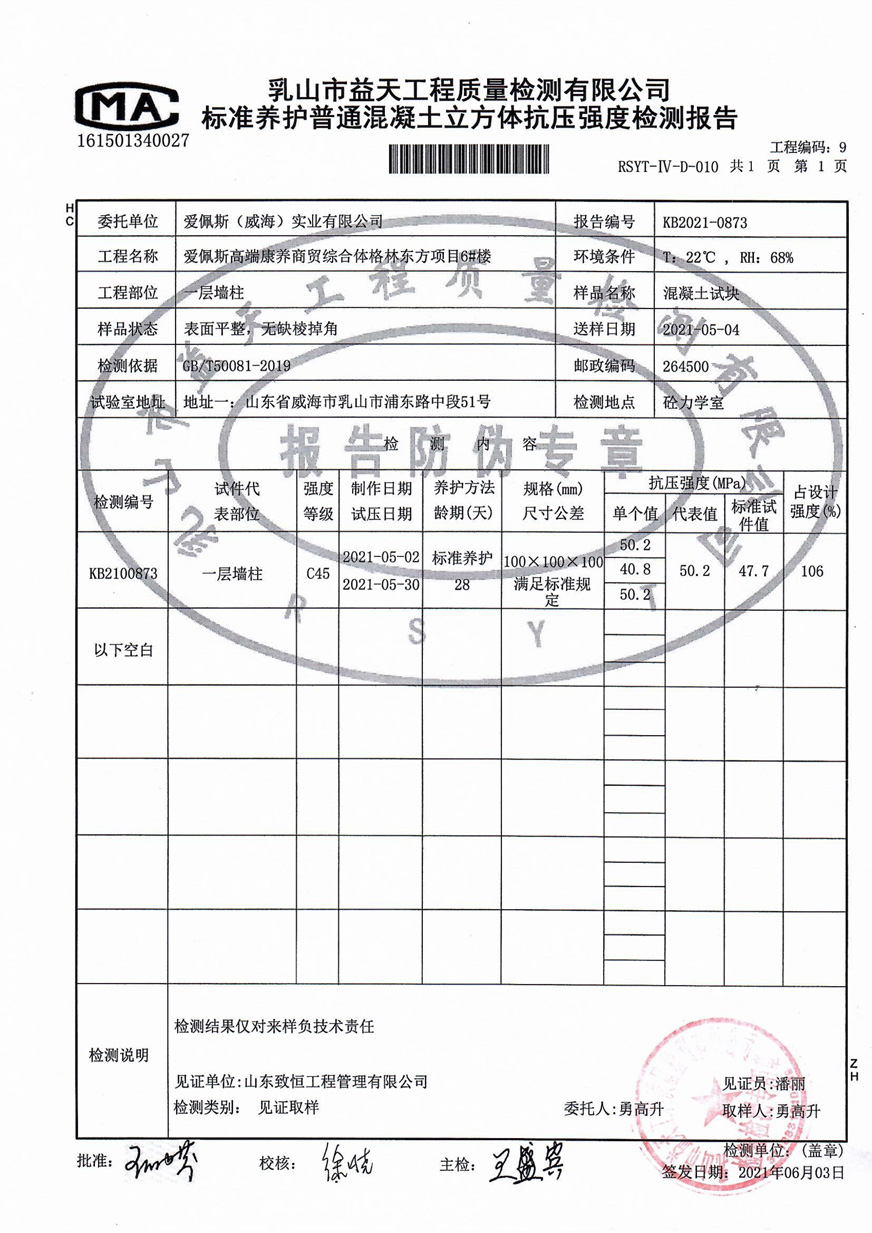 乳山市益天工程质量检测有限公司
标准养护普通混凝土立方体抗压强度检测报告
MA
161501340027
工程编码：9
RSYT-Ⅳ-D-010 共1 页 第 1 页
HC
委托单位 爱佩斯（威海）实业有限公司 报告编号 KB2021-0873
工程名称 爱佩斯高端康养商贸综合体格林东方项目6#楼 环境条件 T：22℃ ，RH：68%
工程部位 一层墙柱 样品名称 混凝土试块
样品状态 表面平整，无缺棱掉角 送样日期 2021-05-04
检测依据 GB/T50081-2019 邮政编码 264500
试验室地址 地址一：山东省威海市乳山市浦东路中段51号 检测地点 砼力学室
检 测 内 容
乳山市益天工程质量检测有限公司
报告防伪专章
RSYT
检测编号 试件代表部位 强度等级 制作日期 试压日期 养护方法 龄期(天) 规格(mm) 尺寸公差 抗压强度(MPa) 单个值 代表值 标准试件值 占设计强度(%)
KB2100873 一层墙柱 C45 2021-05-02 2021-05-30 标准养护 28 100×100×100 满足标准规定 50.2 40.8 50.2 50.2 47.7 106
以下空白
检测说明
检测结果仅对来样负技术责任
见证单位:山东致恒工程管理有限公司 见证员:潘丽
检测类别： 见证取样 委托人:勇高升 取样人:勇高升
ZH
批准： 校核： 主检： 王盛宾 检测单位：(盖章)
签发日期：2021年06月03日